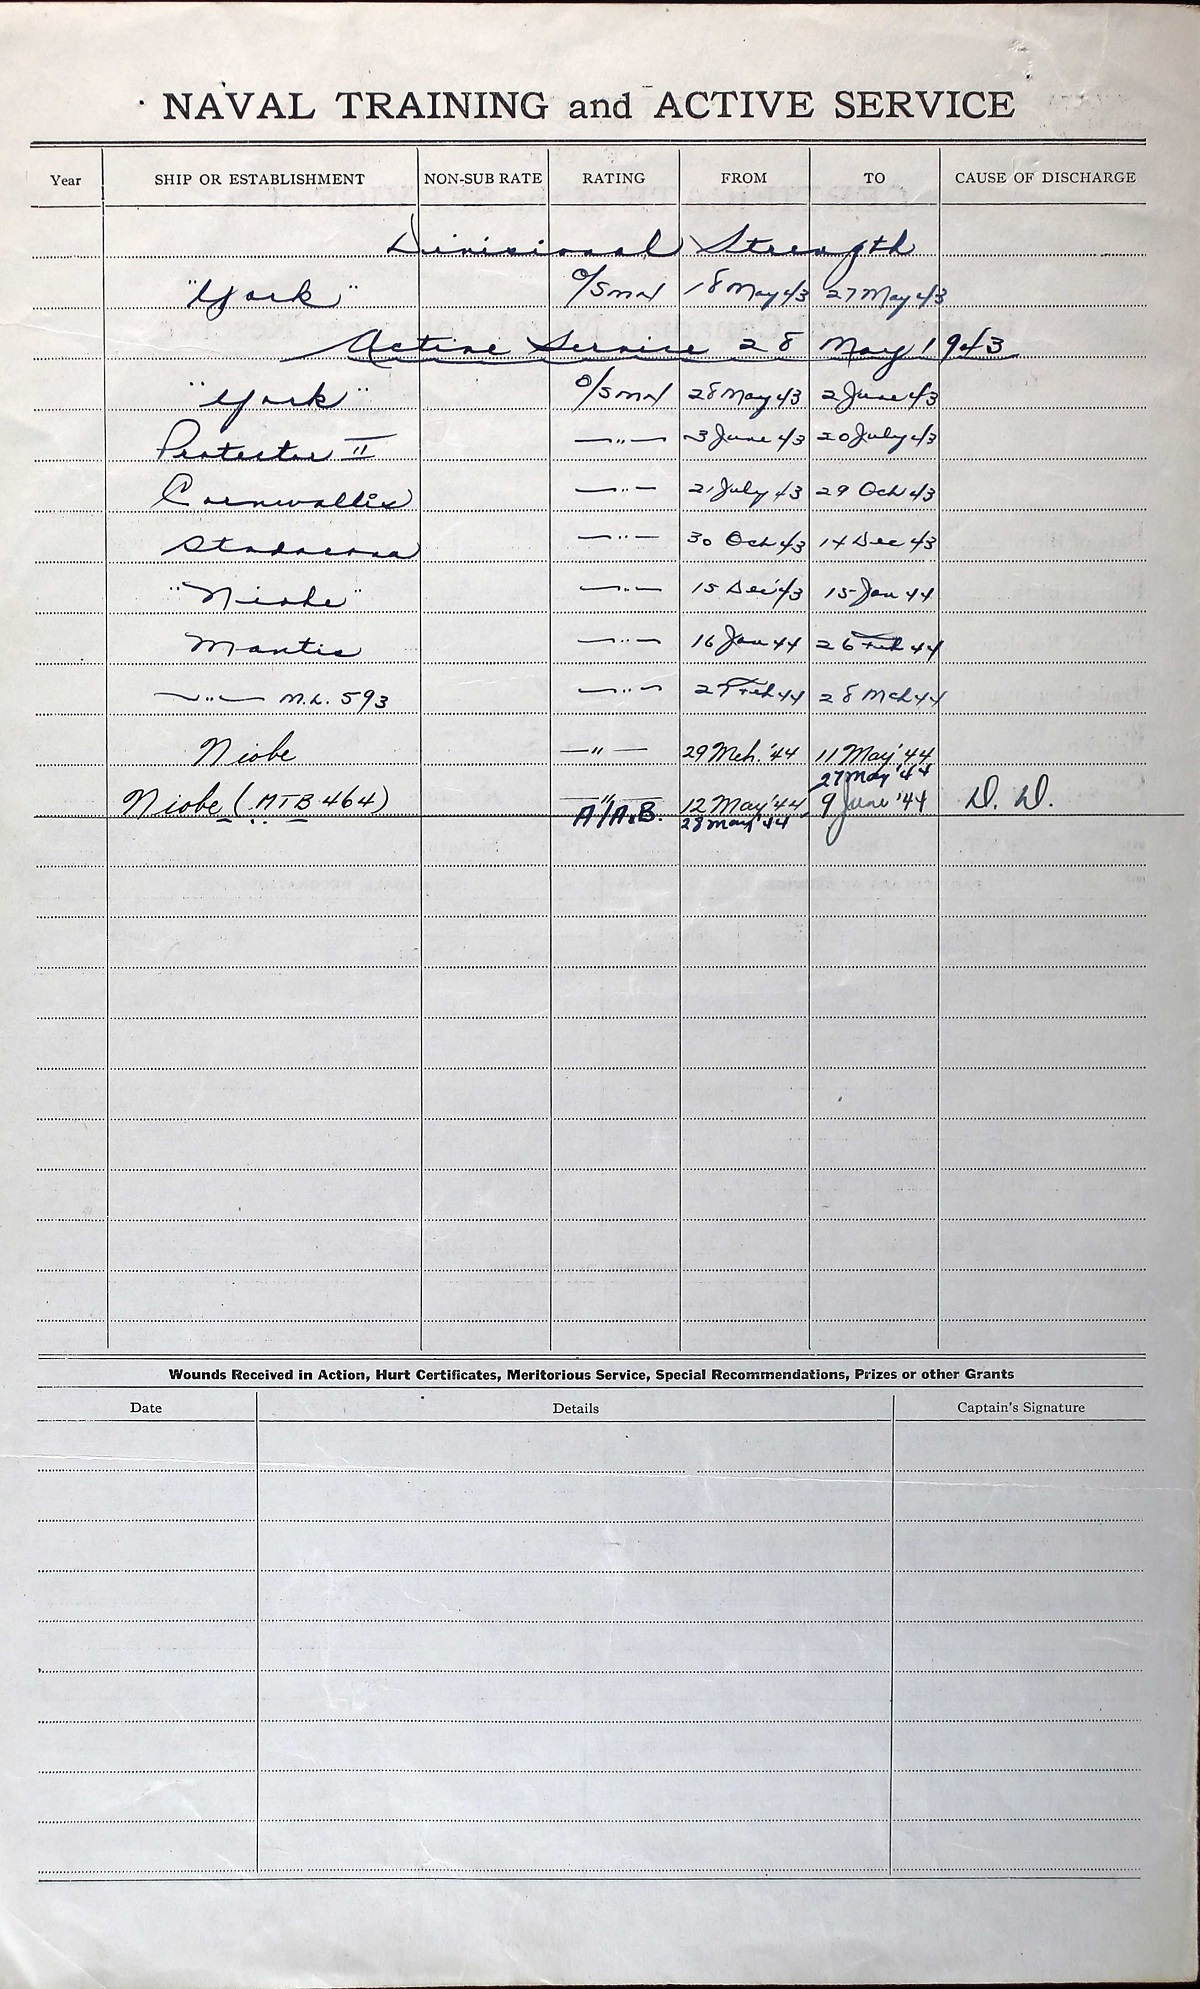 NAVAL TRAINING and ACTIVE SERVICE
Year SHIP OR ESTABLISHMENT NON-SUB RATE RATING FROM TO CAUSE OF DISCHARGE
Divisional Strength
"York" O/Smn 18 May 43 27 May 43
Active Service 28 May 1943
"York" O/Smn 28 May 43 2 June 43
Protector II —"— 3 June 43 20 July 43
Cornwallis —"— 21 July 43 29 Oct 43
Stadacona —"— 30 Oct 43 14 Dec 43
"Niobe" —"— 15 Dec 43 15 Jan 44
Mantis —"— 16 Jan 44 26 Feb 44
—"— M.L. 593 —"— 27 Feb 44 28 Mch 44
Niobe —"— 29 Mch. '44 11 May '44
27 May '44
Niobe (MTB 464) —"— 12 May '44 9 June '44 D. D.
A/A.B. 28 May '44
Wounds Received in Action, Hurt Certificates, Meritorious Service, Special Recommendations, Prizes or other Grants
Date Details Captain's Signature